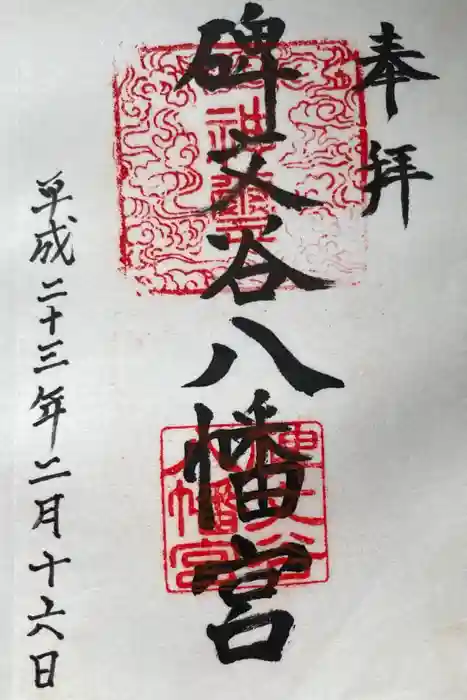 奉拝
碑文谷八幡宮
平成二十三年二月十六日
碑文谷
八幡宮